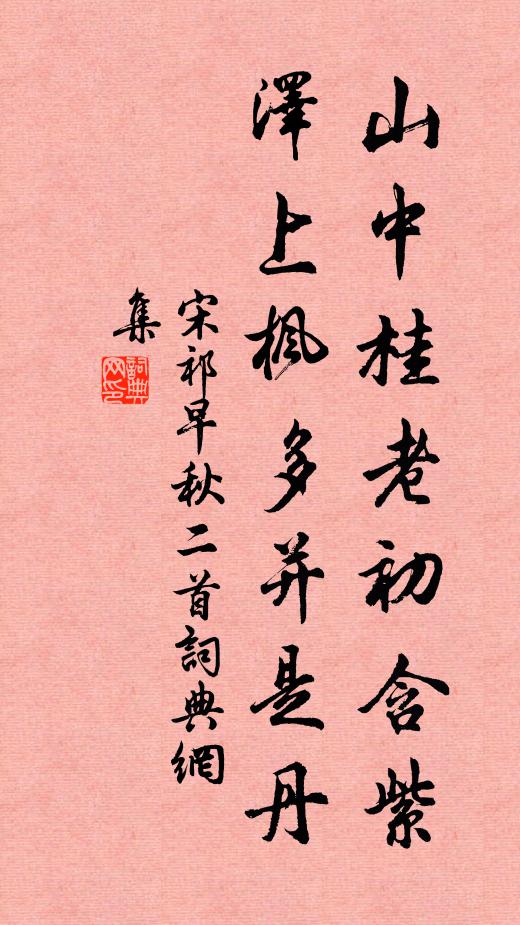 山中桂老初含紫
澤上楓多并是丹
宋祁早秋二首詞典網
集
詞典
网印